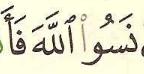 نَسُوا۟ ٱللَّهَ فَأَ